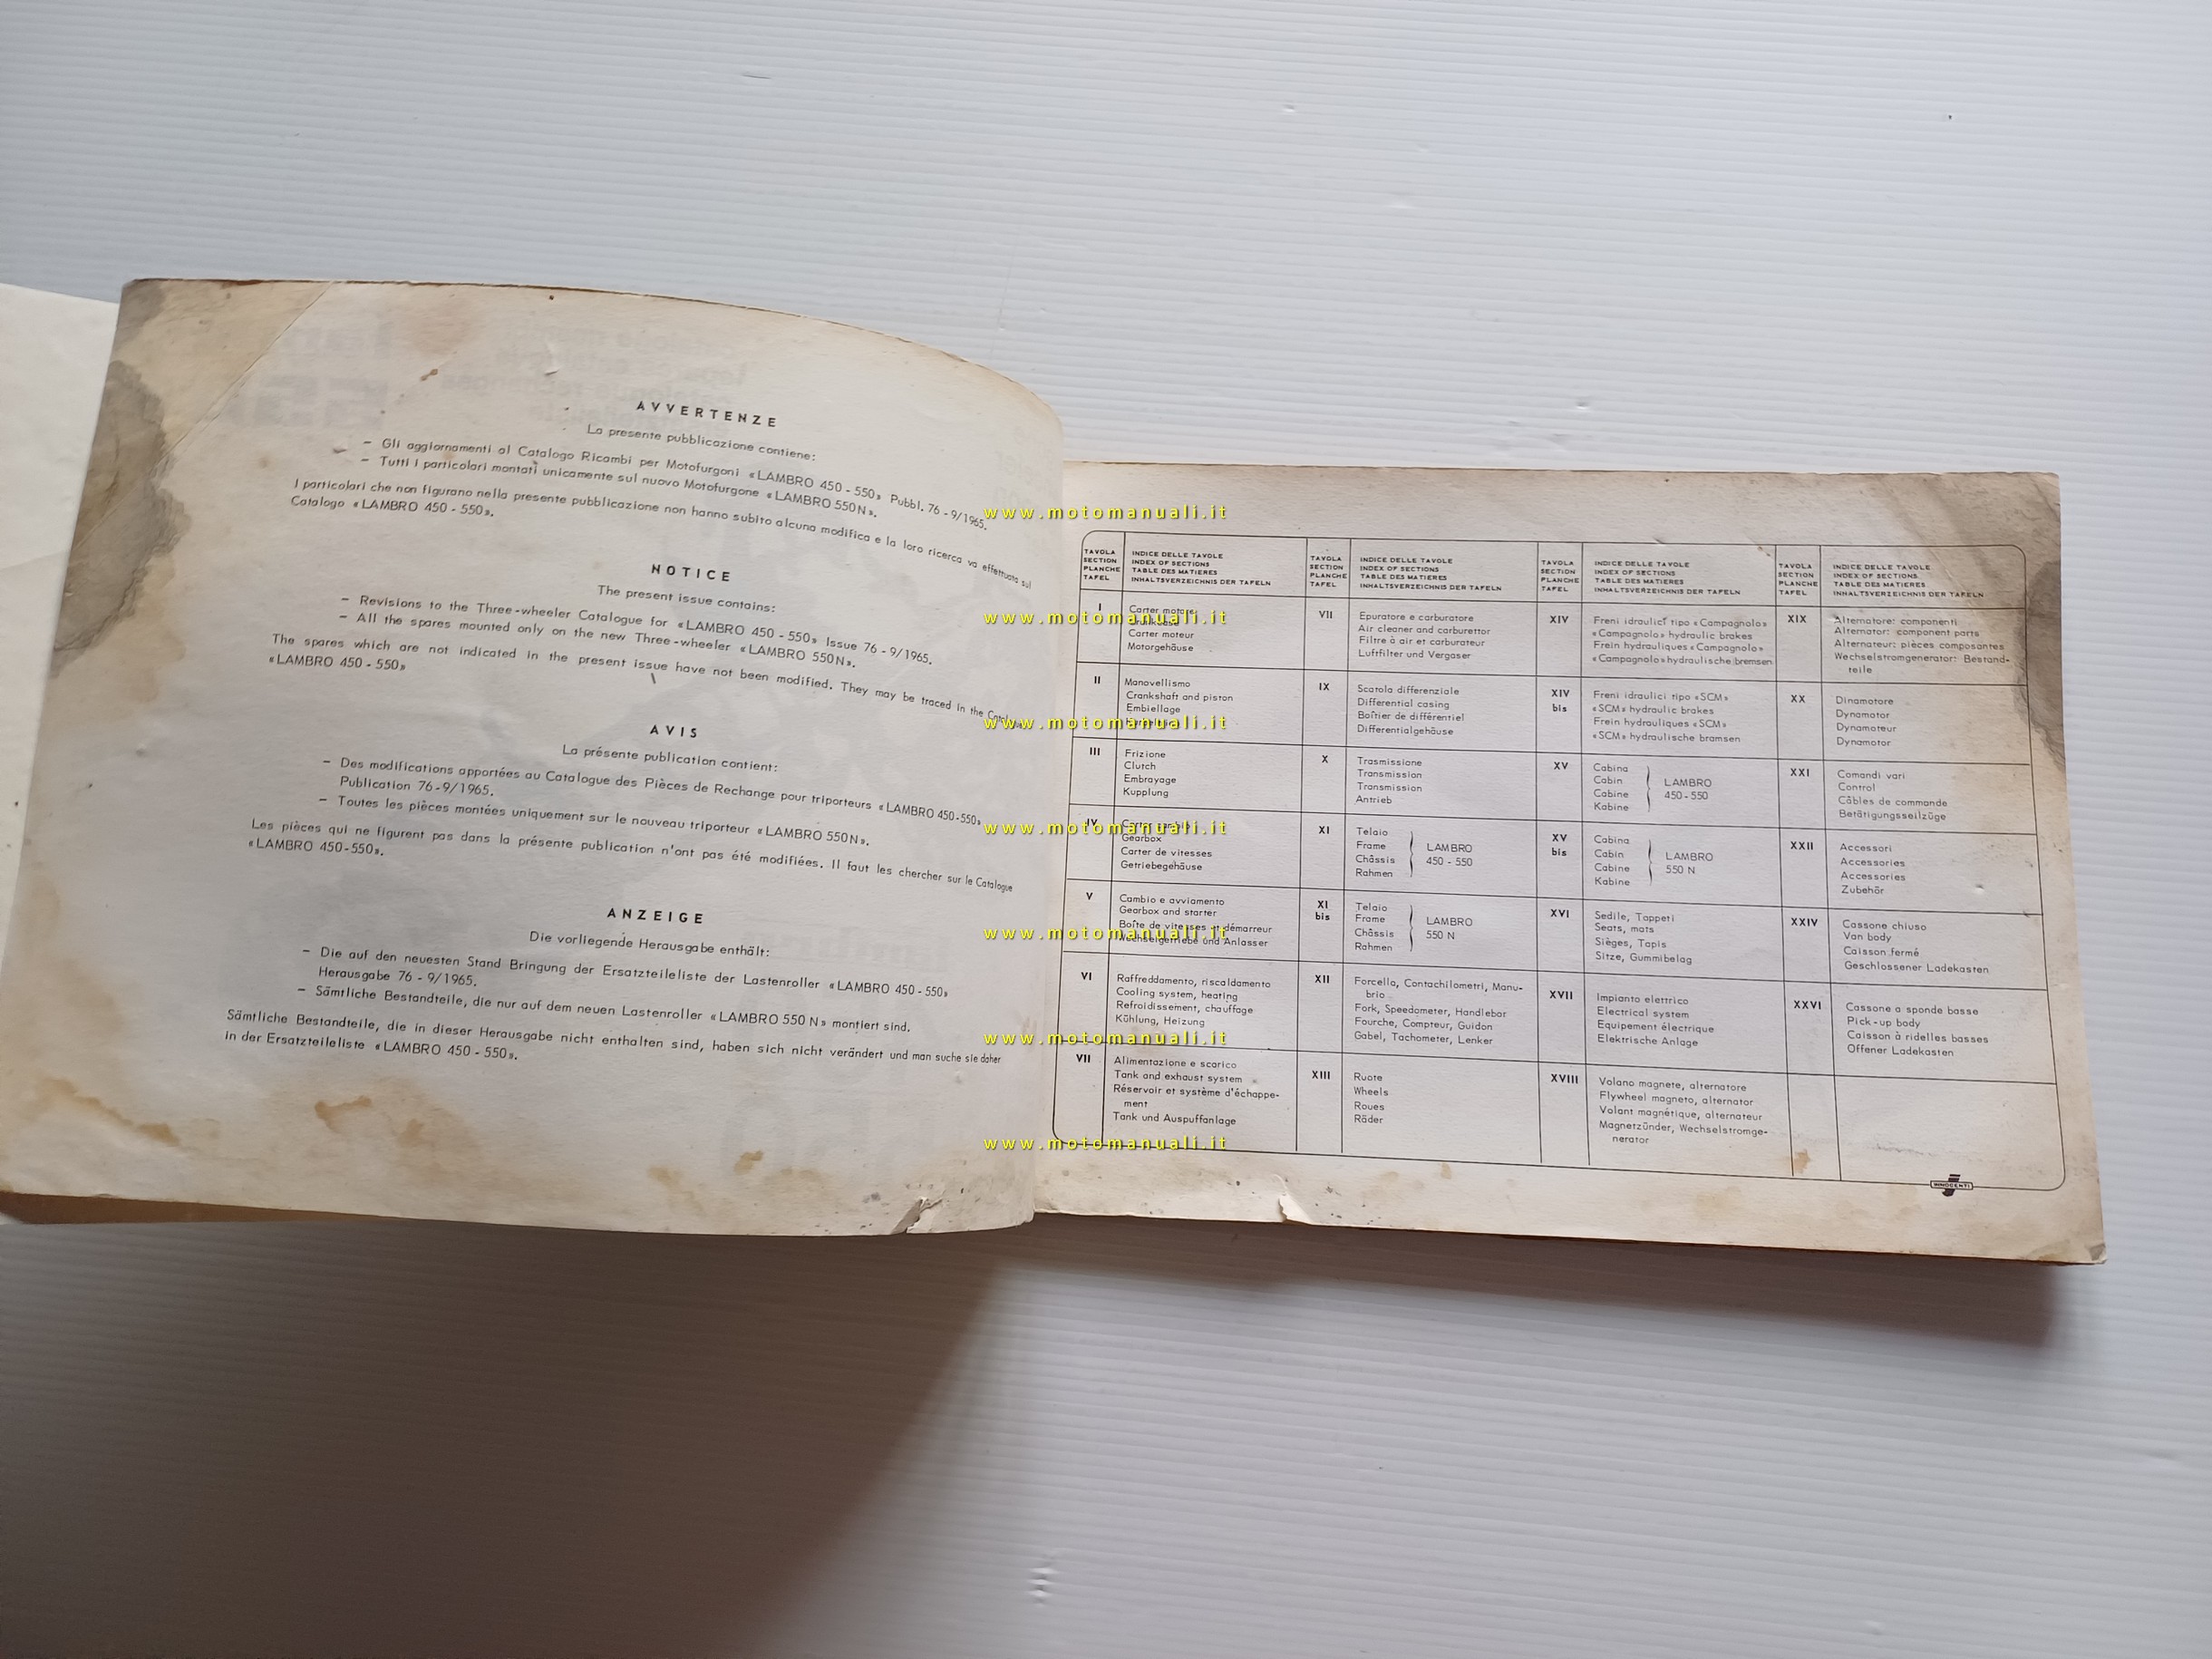 AVVERTENZE
La presente pubblicazione contiene:
– Gli aggiornamenti al Catalogo Ricambi per Motofurgoni «LAMBRO 450 - 550» Pubbl. 76 - 9/1965.
– Tutti i particolari montati unicamente sul nuovo Motofurgone «LAMBRO 550 N».
I particolari che non figurano nella presente pubblicazione non hanno subito alcuna modifica e la loro ricerca va effettuata sul
Catalogo «LAMBRO 450 - 550».
NOTICE
The present issue contains:
– Revisions to the Three-wheeler Catalogue for «LAMBRO 450 - 550» Issue 76 - 9/1965.
– All the spares mounted only on the new Three-wheeler «LAMBRO 550 N».
The spares which are not indicated in the present issue have not been modified. They may be traced in the
«LAMBRO 450 - 550»
AVIS
La présente publication contient:
– Des modifications apportées au Catalogue des Pièces de Rechange pour triporteurs «LAMBRO 450-550»
Publication 76-9/1965.
– Toutes les pièces montées uniquement sur le nouveau triporteur «LAMBRO 550 N».
Les pièces qui ne figurent pas dans la présente publication n'ont pas été modifiées. Il faut les chercher sur le Catalogue
«LAMBRO 450-550».
ANZEIGE
Die vorliegende Herausgabe enthält:
– Die auf den neuesten Stand Bringung der Ersatzteileliste der Lastenroller «LAMBRO 450 - 550»
Herausgabe 76 - 9/1965.
– Sämtliche Bestandteile, die nur auf dem neuen Lastenroller «LAMBRO 550 N» montiert sind.
Sämtliche Bestandteile, die in dieser Herausgabe nicht enthalten sind, haben sich nicht verändert und man suche sie daher
in der Ersatzteileliste «LAMBRO 450 - 550».
TAVOLA
SECTION
PLANCHE
TAFEL
INDICE DELLE TAVOLE
INDEX OF SECTIONS
TABLE DES MATIERES
INHALTSVERZEICHNIS DER TAFELN
I
Carter motore
Carter moteur
Motorgehäuse
II
Manovellismo
Crankshaft and piston
Embiellage
III
Frizione
Clutch
Embrayage
Kupplung
IV
Gearbox
Carter de vitesses
Getriebegehäuse
V
Cambio e avviamento
Gearbox and starter
Boîte de vitesses et démarreur
Wechselgetriebe und Anlasser
VI
Raffreddamento, riscaldamento
Cooling system, heating
Refroidissement, chauffage
Kühlung, Heizung
VII
Alimentazione e scarico
Tank and exhaust system
Réservoir et système d'échappe-
ment
Tank und Auspuffanlage
TAVOLA
SECTION
PLANCHE
TAFEL
INDICE DELLE TAVOLE
INDEX OF SECTIONS
TABLE DES MATIERES
INHALTSVERZEICHNIS DER TAFELN
VII
Epuratore e carburatore
Air cleaner and carburettor
Filtre à air et carburateur
Luftfilter und Vergaser
IX
Scatola differenziale
Differential casing
Boîtier de différentiel
Differentialgehäuse
X
Trasmissione
Transmission
Transmission
Antrieb
XI
Telaio
Frame
Châssis
Rahmen
LAMBRO
450 - 550
XI
bis
Telaio
Frame
Châssis
Rahmen
LAMBRO
550 N
XII
Forcella, Contachilometri, Manu-
brio
Fork, Speedometer, Handlebar
Fourche, Compteur, Guidon
Gabel, Tachometer, Lenker
XIII
Ruote
Wheels
Roues
Räder
TAVOLA
SECTION
PLANCHE
TAFEL
INDICE DELLE TAVOLE
INDEX OF SECTIONS
TABLE DES MATIERES
INHALTSVERZEICHNIS DER TAFELN
XIV
Freni idraulici tipo «Campagnolo»
«Campagnolo» hydraulic brakes
Frein hydrauliques «Campagnolo»
«Campagnolo» hydraulische bremsen
XIV
bis
Freni idraulici tipo «SCM»
«SCM» hydraulic brakes
Frein hydrauliques «SCM»
«SCM» hydraulische bramsen
XV
Cabina
Cabin
Cabine
Kabine
LAMBRO
450-550
XV
bis
Cabina
Cabin
Cabine
Kabine
LAMBRO
550 N
XVI
Sedile, Tappeti
Seats, mats
Sièges, Tapis
Sitze, Gummibelag
XVII
Impianto elettrico
Electrical system
Equipement électrique
Elektrische Anlage
XVIII
Volano magnete, alternatore
Flywheel magneto, alternator
Volant magnétique, alternateur
Magnetzünder, Wechselstromge-
nerator
TAVOLA
SECTION
PLANCHE
TAFEL
INDICE DELLE TAVOLE
INDEX OF SECTIONS
TABLE DES MATIERES
INHALTSVERZEICHNIS DER TAFELN
XIX
Alternatore: componenti
Alternator: component parts
Alternateur: pièces composantes
Wechselstromgenerator: Bestand-
teile
XX
Dinamotore
Dynamotor
Dynamoteur
Dynamotor
XXI
Comandi vari
Control
Câbles de commande
Betätigungsseilzüge
XXII
Accessori
Accessories
Accessories
Zubehör
XXIV
Cassone chiuso
Van body
Caisson fermé
Geschlossener Ladekasten
XXVI
Cassone a sponde basse
Pick-up body
Caisson à ridelles basses
Offener Ladekasten
INNOCENTI
www.motomanuali.it
www.motomanuali.it
www.motomanuali.it
www.motomanuali.it
www.motomanuali.it
www.motomanuali.it
www.motomanuali.it